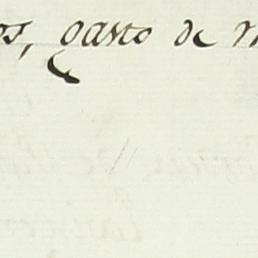 os, gasto de